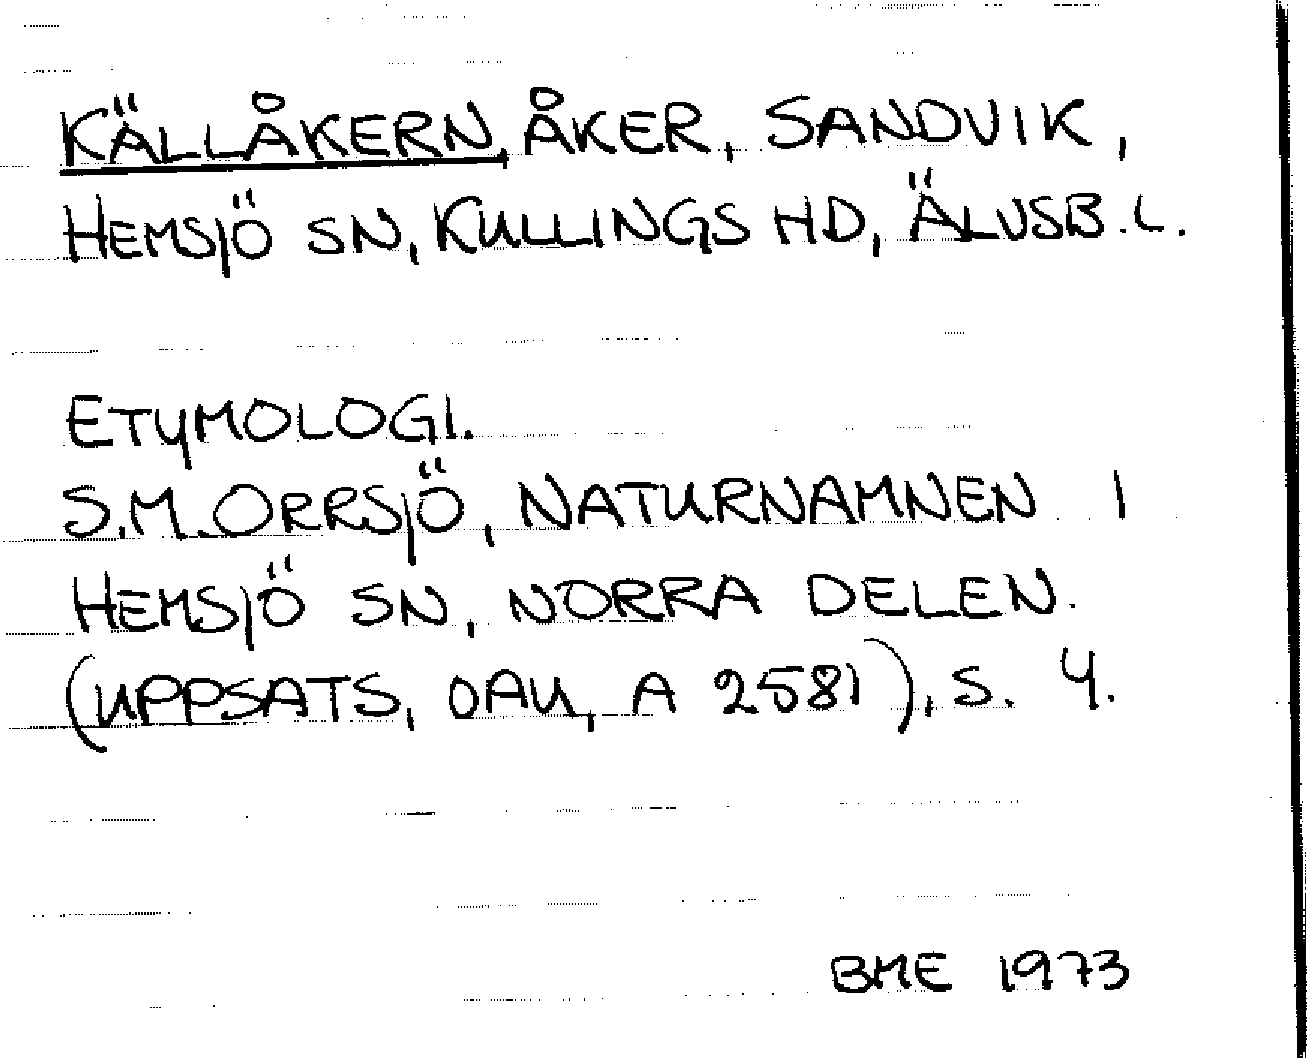 KÄLLÅKERN, ÅKER, SANDVIK,
HEMSJÖ SN, KULLINGS HD, ÄLVSB. L.
ETYMOLOGI.
S.M. ORRSJÖ, NATURNAMNEN I
HEMSJÖ SN, NORRA DELEN.
(UPPSATS, OAU, A 2581), S. 4.
BME 1973